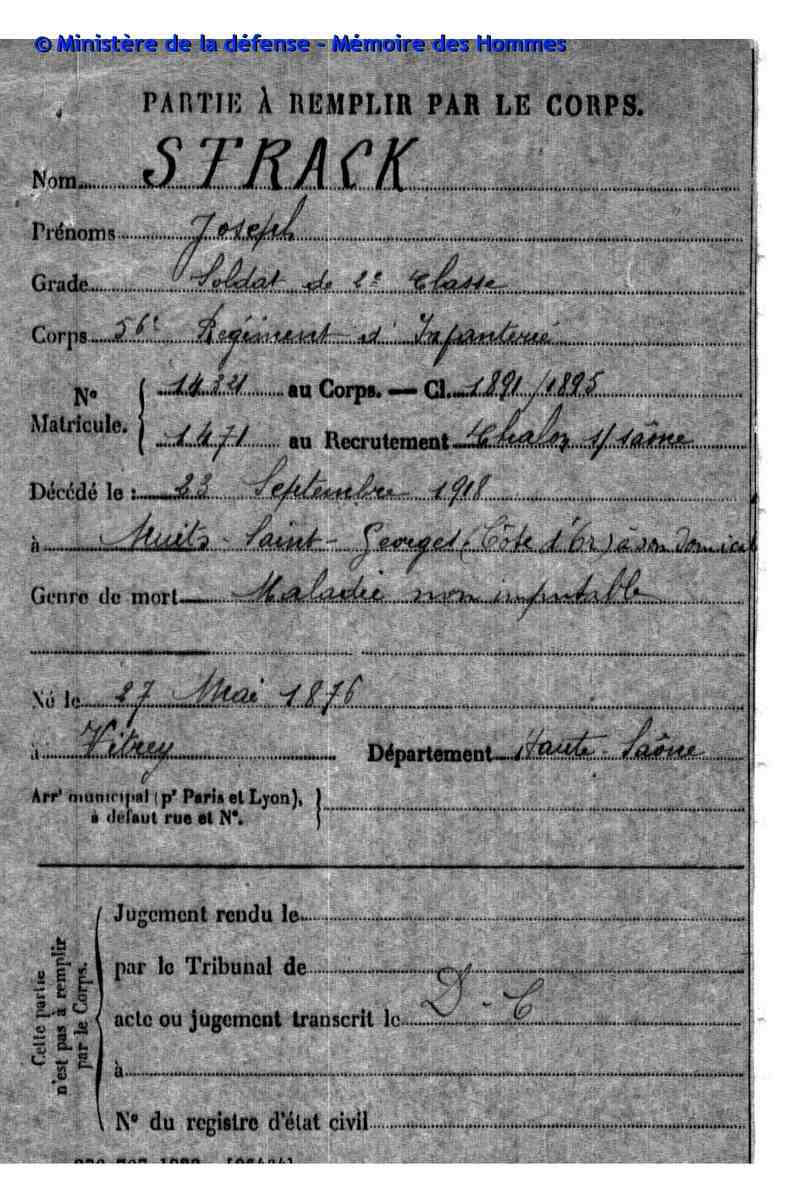 © Ministère de la défense - Mémoire des Hommes
PARTIE À REMPLIR PAR LE CORPS.
Nom STRACK
Prénoms Joseph
Grade Soldat de 2e Classe
Corps 56e Régiment d'Infanterie
No Matricule. 14321 au Corps. — Cl. 1891/1895
1471 au Recrutement Chalon s/ Saône
Décédé le : 23 Septembre 1918
à Nuits-Saint-Georges (Côte d'Or) à son domicile
Genre de mort Maladie non imputable
Né le 27 Mai 1876
à Vitrey Département Haute-Saône
Arrt municipal (pr Paris et Lyon), à défaut rue et No.
Cette partie n'est pas à remplir par le Corps.
Jugement rendu le
par le Tribunal de
acte ou jugement transcrit le D-C
à
No du registre d'état civil